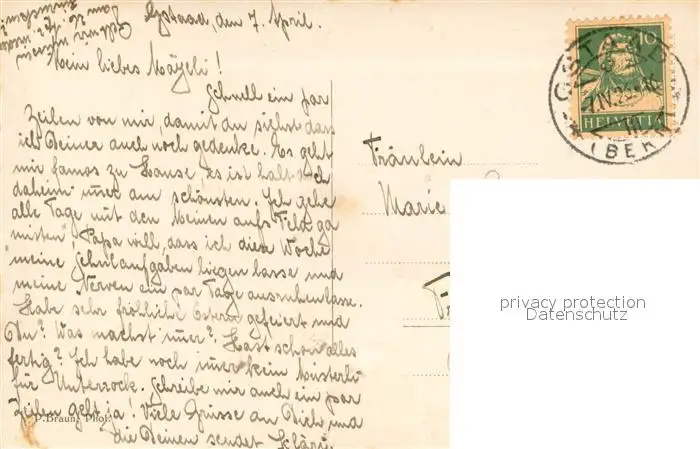 Gstaad, den 7. April.
Mein liebes Mägeli!
Schnell ein par
Zeilen von mir, damit du siehst dass
ich Deiner auch noch gedenke. Es geht
mir famos zu Hause, es ist halt doch
daheim imer am schönsten. Ich gehe
alle Tage mit den Meinen aufs Feld ga
misten! Papa will, dass ich diese Woche
meine Schulaufgaben liegen lasse und
meine Nerven ein par Tage ausruhen lasse.
Habe sehr fröhliche Ostern gefeiert und
Du? Was machst imer? Hast schon alles
fertig? Ich habe noch imer kein Müsterli
für Unterrock. Schreibe mir auch ein par
Zeilen gelt ja! Viele Grüsse an Dich und
die Deinen sendet Kläri.
D. Braun, Phot.
10
HELVETIA
GSTAAD
(BERN)
Fräulein
Marie
privacy protection
Datenschutz